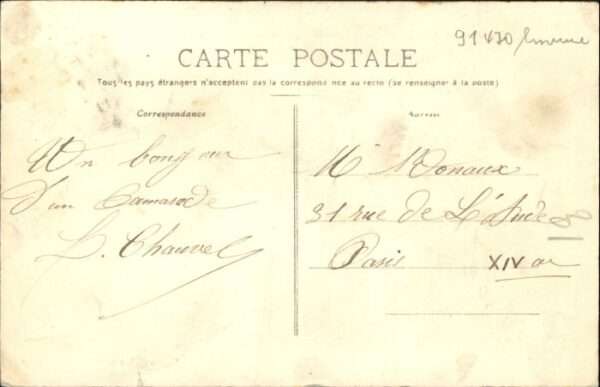 91430
CARTE POSTALE
Tous les pays étrangers n'acceptent pas la correspondance au recto (se renseigner à la poste)
Correspondance
Adresse
Un bonjour
d'un Camarade
L. Chauvel
Mr Donaux
31 rue de L'
Paris XIV ar